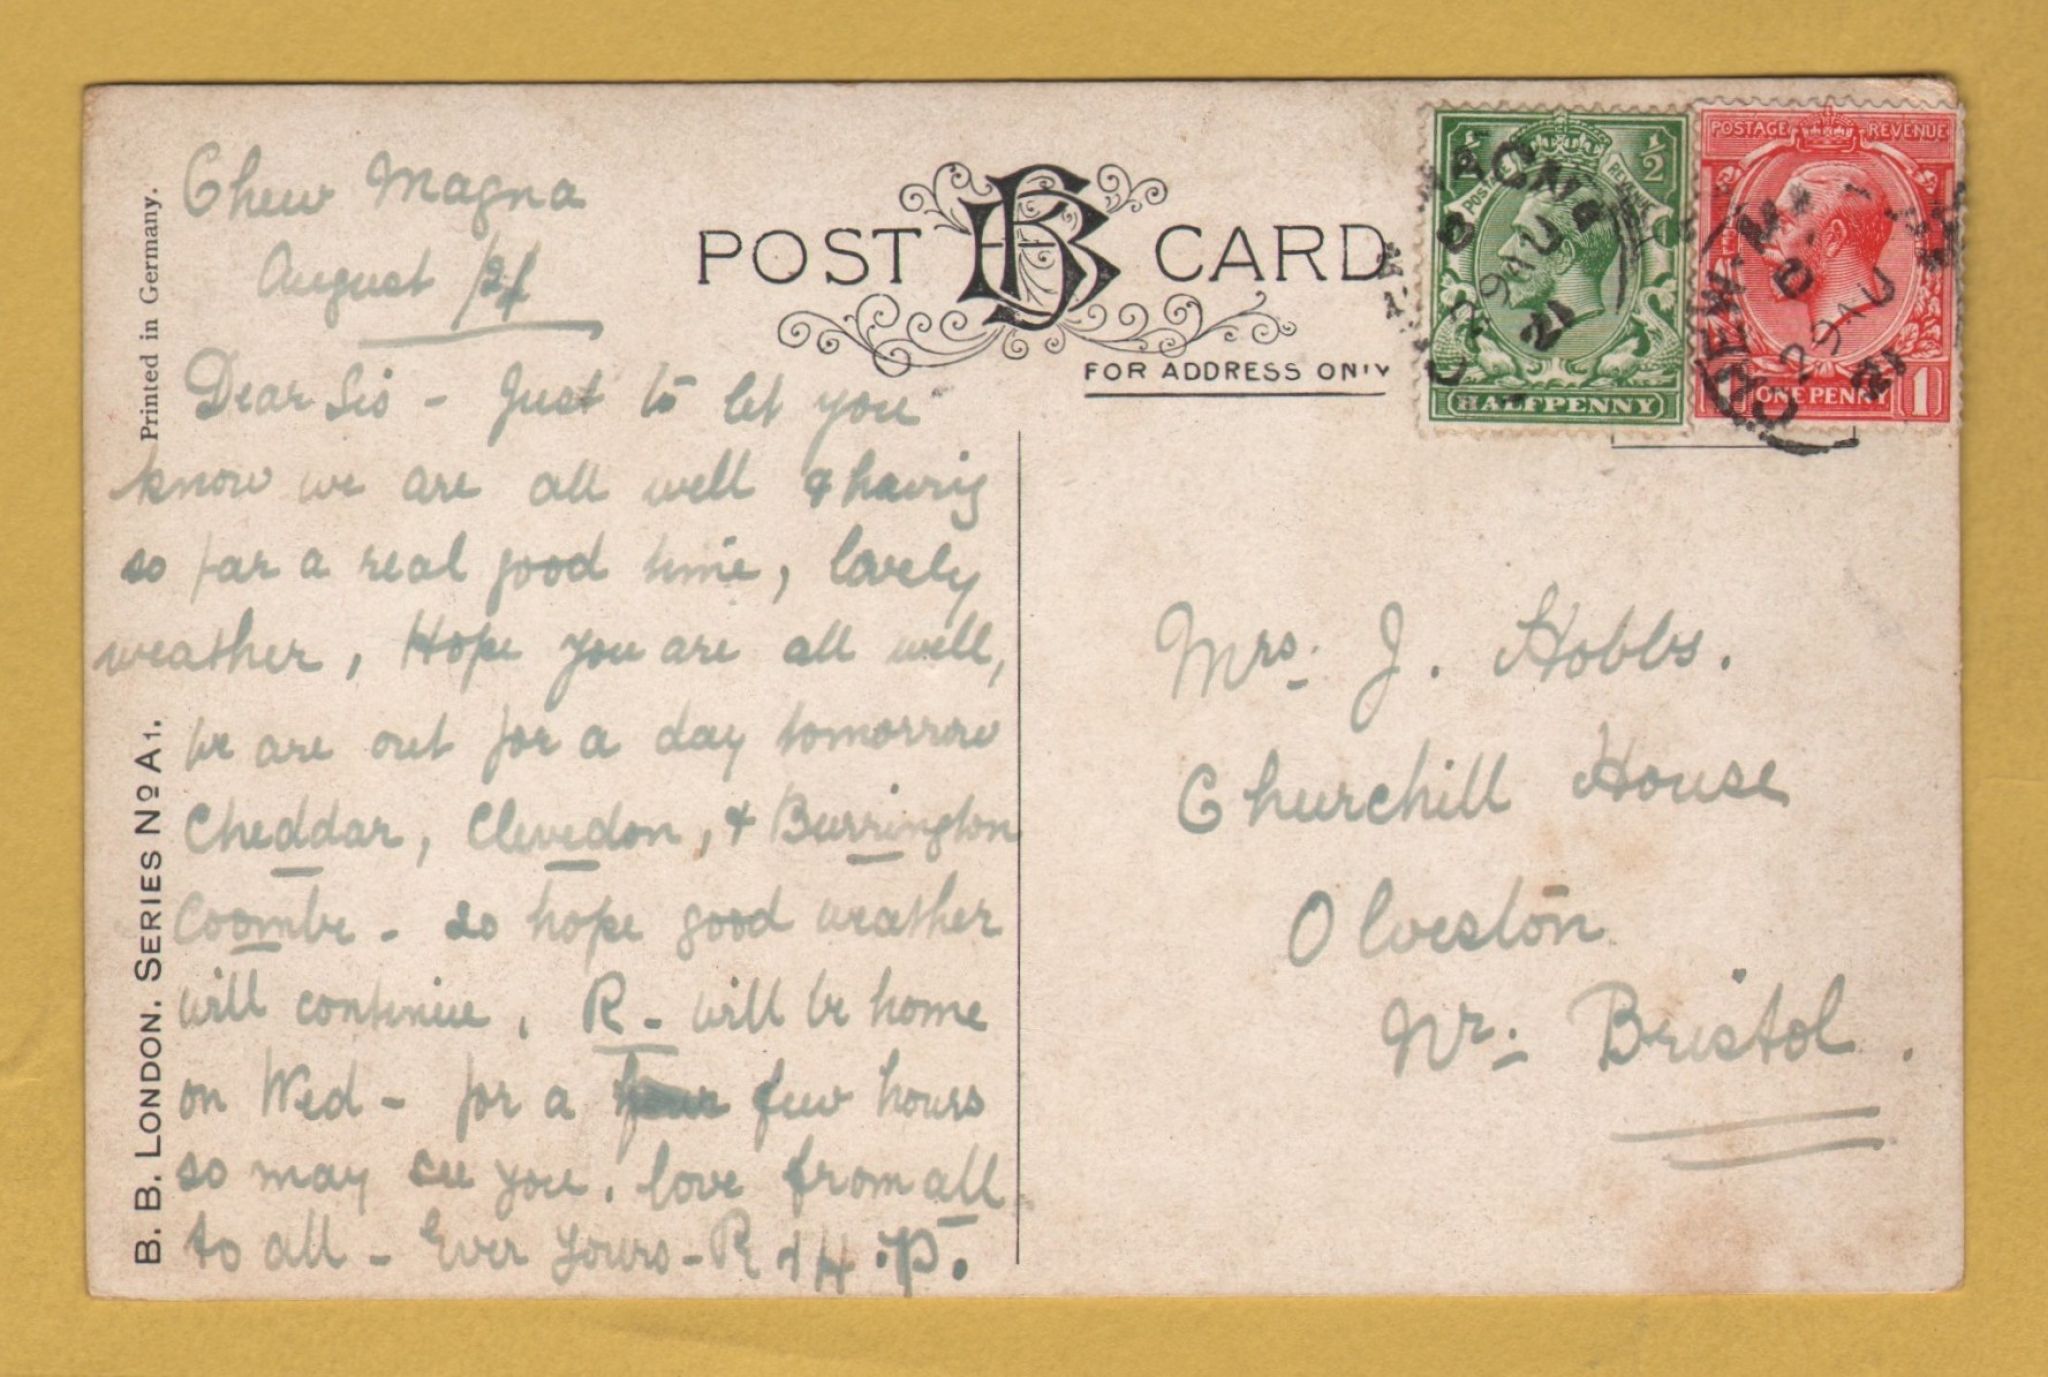 Chew Magna
August /21
Dear Sis - Just to let you
know we are all well & having
so far a real good time, lovely
weather, Hope you are all well,
we are out for a day tomorrow
Cheddar, Clevedon, & Burrington
Coombe - so hope good weather
will continue, R - will be home
on Wed - for a few hours
so may see you. love from all
to all - Ever Yours - R & H.P.
Printed in Germany.
B. B. LONDON. SERIES Nº A1.
POST CARD
BB
FOR ADDRESS ONLY
½ ½
POSTAGE REVENUE
HALFPENNY
POSTAGE REVENUE
ONE PENNY 1
CHEW MAGNA
C
29 AU
21
CHEW-MA
C
29 AU
21
Mrs. J. Hobbs.
Churchill House
Olveston
Nr. Bristol.